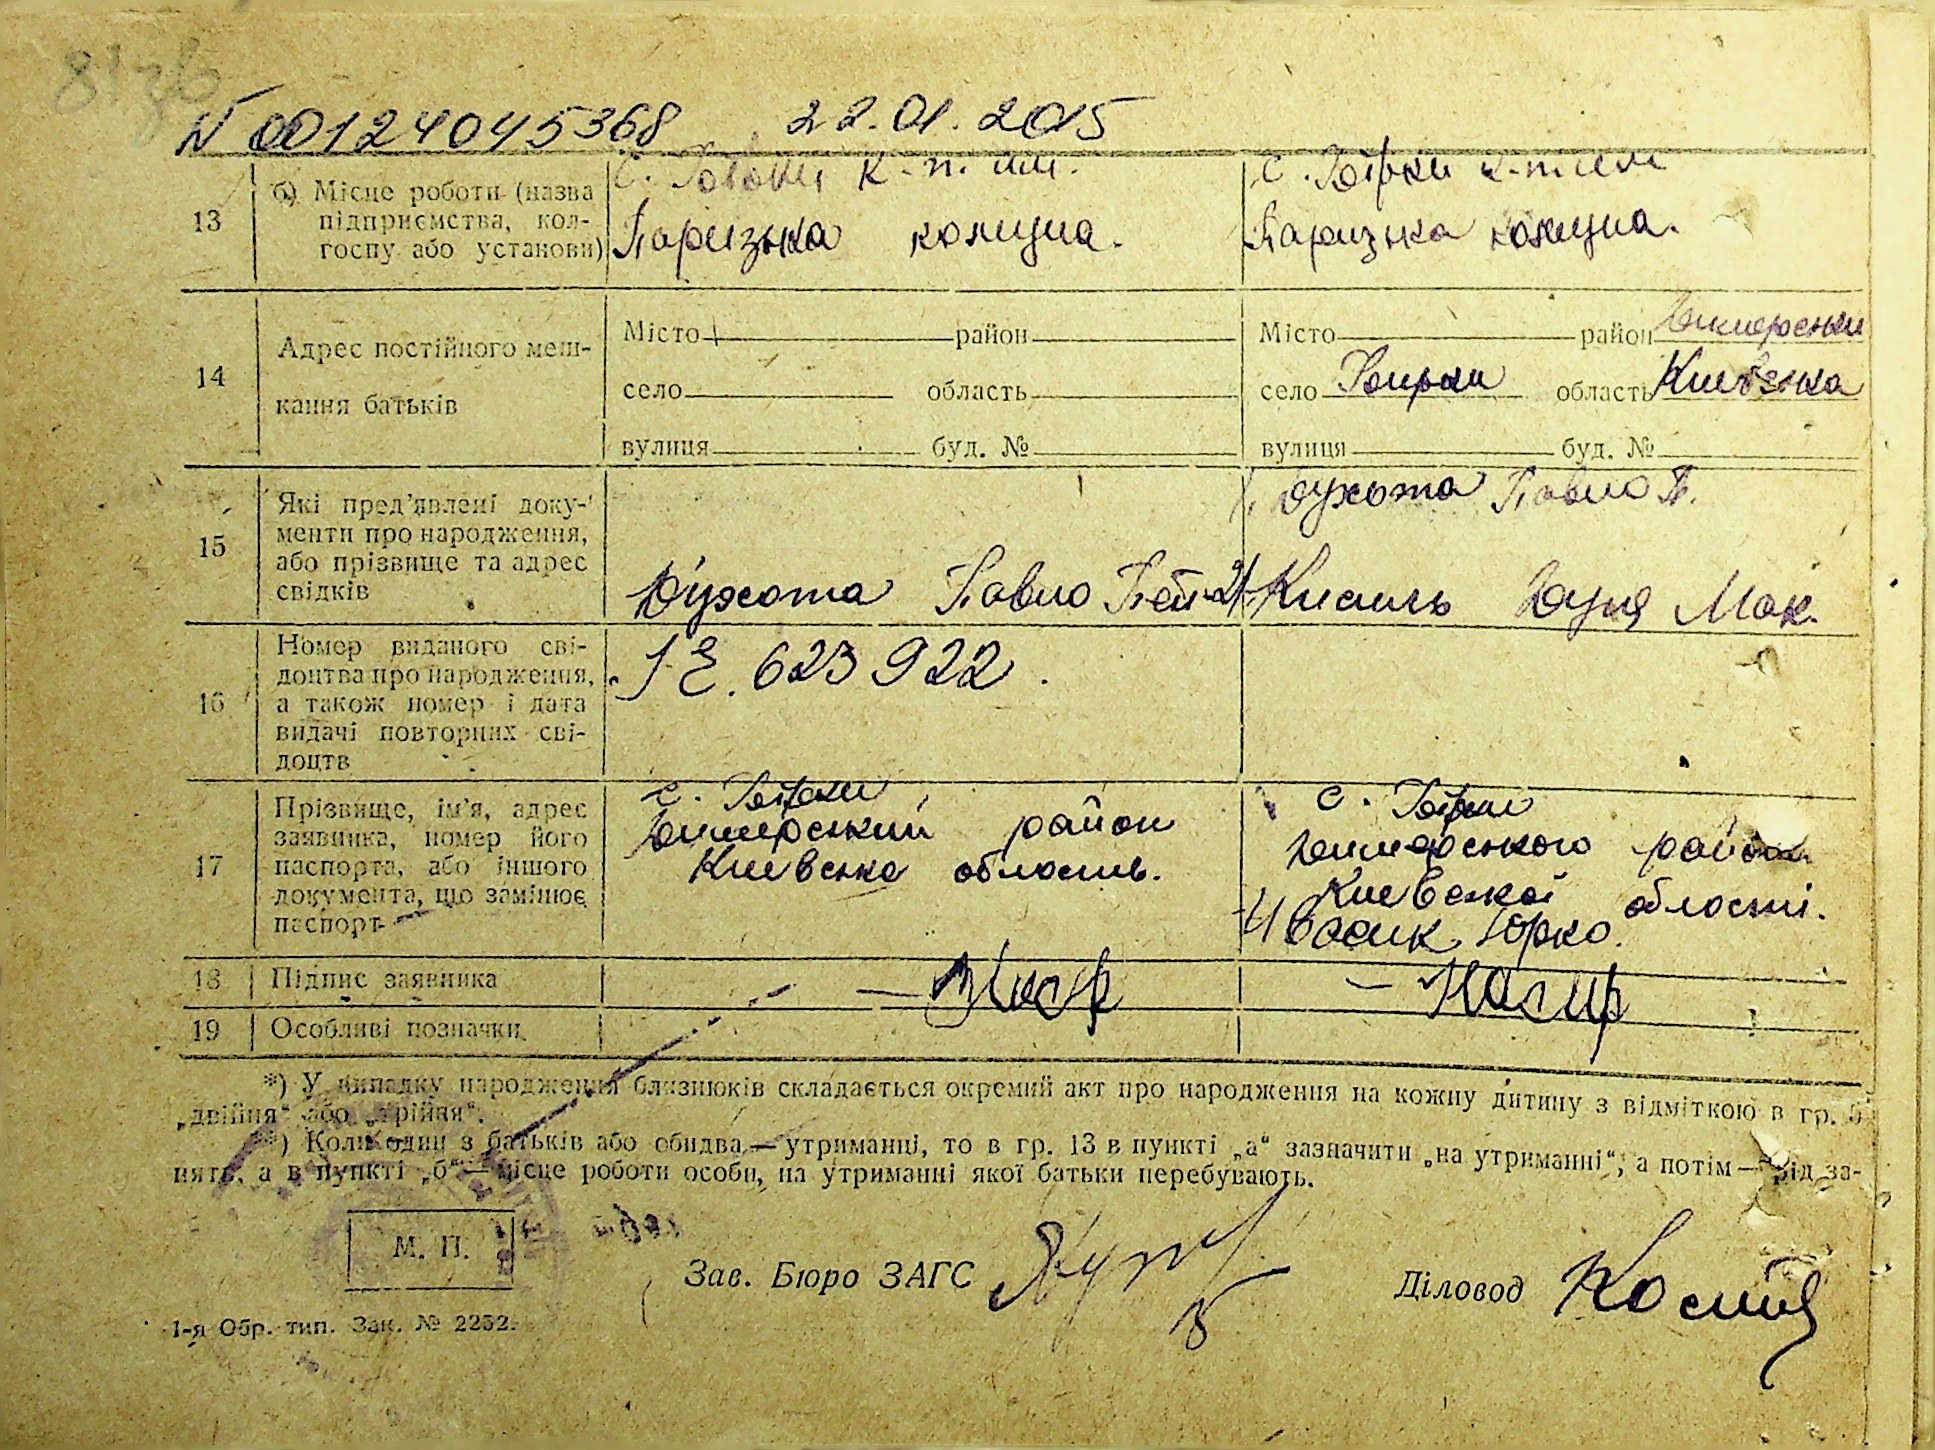 N 00124045368 22.01.2015
13 б) Місце роботи (назва підприємства, колгоспу або установи)
с. к-п. ім. Паризька комуна.
с. Бірки к-п ім Паризька комуна.
14 Адрес постійного мешкання батьків
Місто район
село область
вулиця буд. №
Місто район Димерський
село Бирки область Київська
вулиця буд. №
15 Які пред'явлені документи про народження, або прізвище та адрес свідків
Духота Павло П.
Духота Павло 2) Кисиль Дуня Мак.
16 Номер виданого свідоцтва про народження, а також номер і дата видачі повторних свідоцтв
623922.
17 Прізвище, ім'я, адрес заявника, номер його паспорта, або іншого документа, що замінює паспорт
с. Бірки
Димерський район
Киевська область.
с. Бірки
Димерського район
Киевської області.
Юрко.
18 Підпис заявника
19 Особливі позначки
*) У випадку народження близнюків складається окремий акт про народження на кожну дитину з відміткою в гр. 5
„двійня“ або „трійня“.
**) Коли один з батьків або обидва — утриманці, то в гр. 13 в пункті „а“ зазначити „на утриманні“, а потім — рід за-
нять, а в пункті „б“ — місце роботи особи, на утриманні якої батьки перебувають.
М. П.
Зав. Бюро ЗАГС
Діловод
1-я Обр. тип. Зак. № 2252.